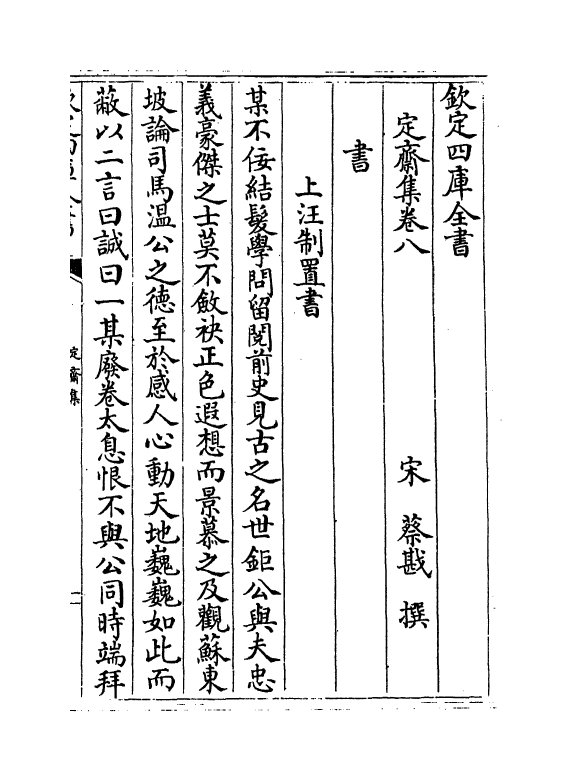 欽定四庫全書
定齋集卷八
宋 蔡戡 撰
書
上汪制置書
某不佞結髮學問留閱前史見古之名世鉅公與夫忠
義豪傑之士莫不斂袂正色遐想而景慕之及觀蘇東
坡論司馬温公之德至於感人心動天地巍巍如此而
蔽以二言曰誠曰一某廢卷太息恨不與公同時端拜
定齋集